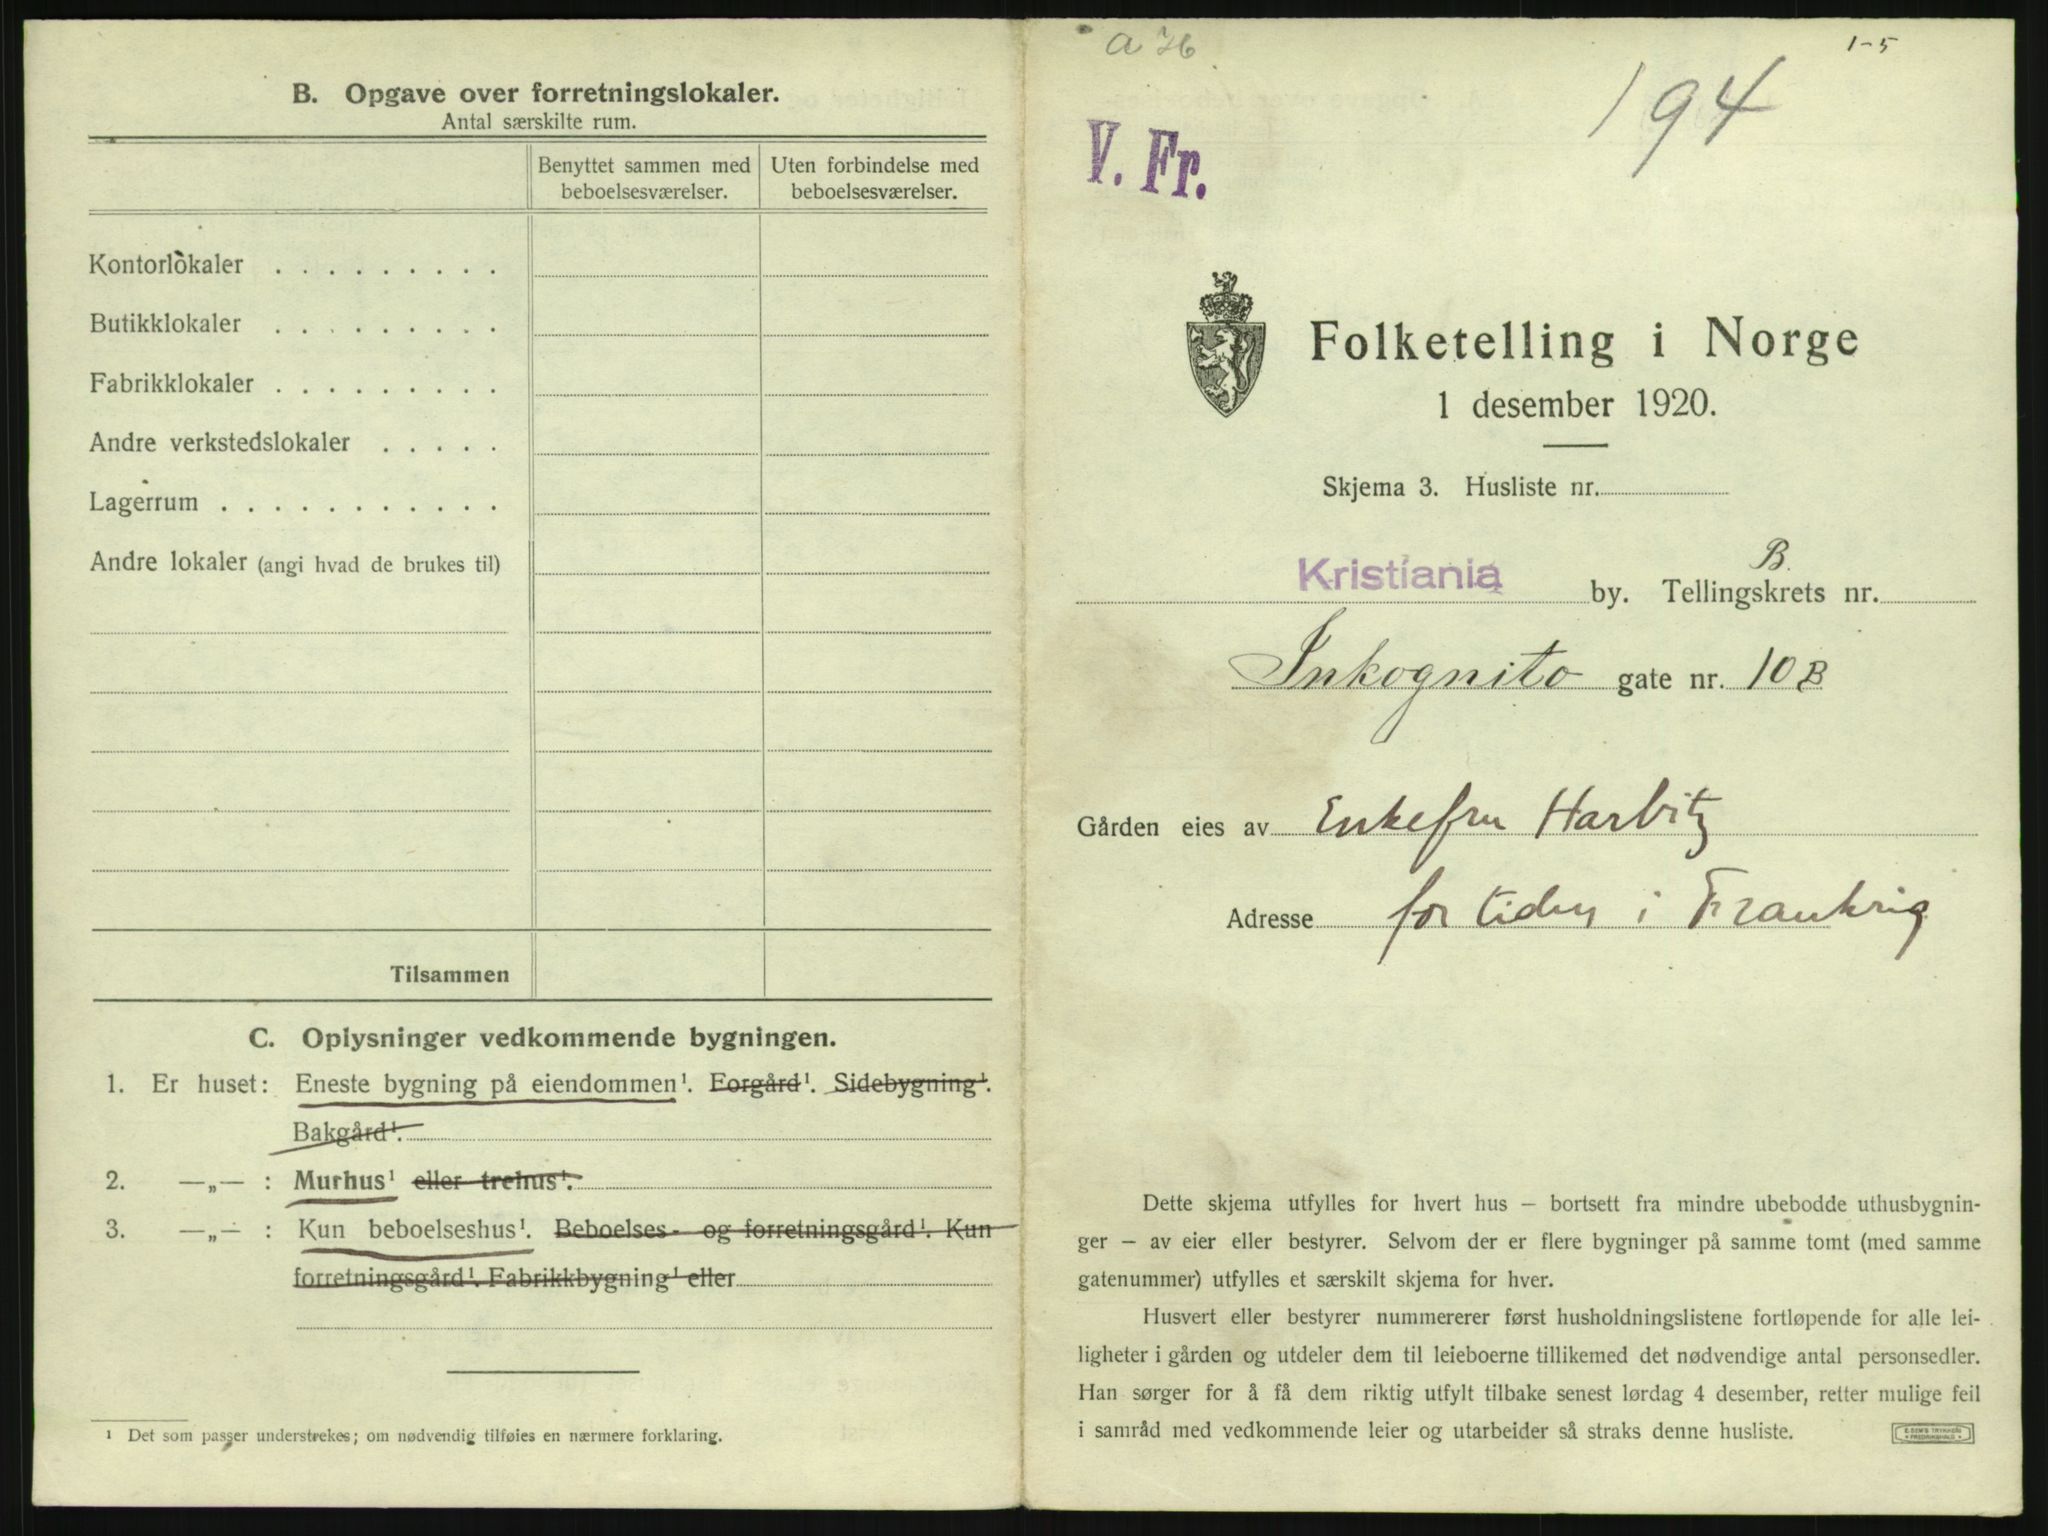 B. Opgave over forretningslokaler.
Antal særskilte rum.
Benyttet sammen med beboelsesværelser.
Uten forbindelse med beboelsesværelser.
Kontorlokaler . . . . . . . . .
Butikklokaler . . . . . . . . .
Fabrikklokaler . . . . . . . . .
Andre verkstedslokaler . . . . .
Lagerrum . . . . . . . . . . . .
Andre lokaler (angi hvad de brukes til)
Tilsammen
C. Oplysninger vedkommende bygningen.
1. Er huset: Eneste bygning på eiendommen¹. Forgård¹. Sidebygning¹.
Bakgård¹.
2. —„— : Murhus¹ eller trehus¹.
3. —„— : Kun beboelseshus¹. Beboelses- og forretningsgård¹. Kun
forretningsgård¹. Fabrikkbygning¹ eller
¹ Det som passer understrekes; om nødvendig tilføies en nærmere forklaring.
a 76
1-5
194
V. Fr.
Folketelling i Norge
1 desember 1920.
Skjema 3. Husliste nr.
B.
Kristiania by. Tellingskrets nr.
Inkognito gate nr. 10 B
Gården eies av Enkefru Harbitz
Adresse for tiden i Frankrig
Dette skjema utfylles for hvert hus – bortsett fra mindre ubebodde uthusbygnin-
ger – av eier eller bestyrer. Selvom der er flere bygninger på samme tomt (med samme
gatenummer) utfylles et særskilt skjema for hver.
Husvert eller bestyrer nummererer først husholdningslistene fortløpende for alle lei-
ligheter i gården og utdeler dem til leieboerne tillikemed det nødvendige antal personsedler.
Han sørger for å få dem riktig utfylt tilbake senest lørdag 4 desember, retter mulige feil
i samråd med vedkommende leier og utarbeider så straks denne husliste.